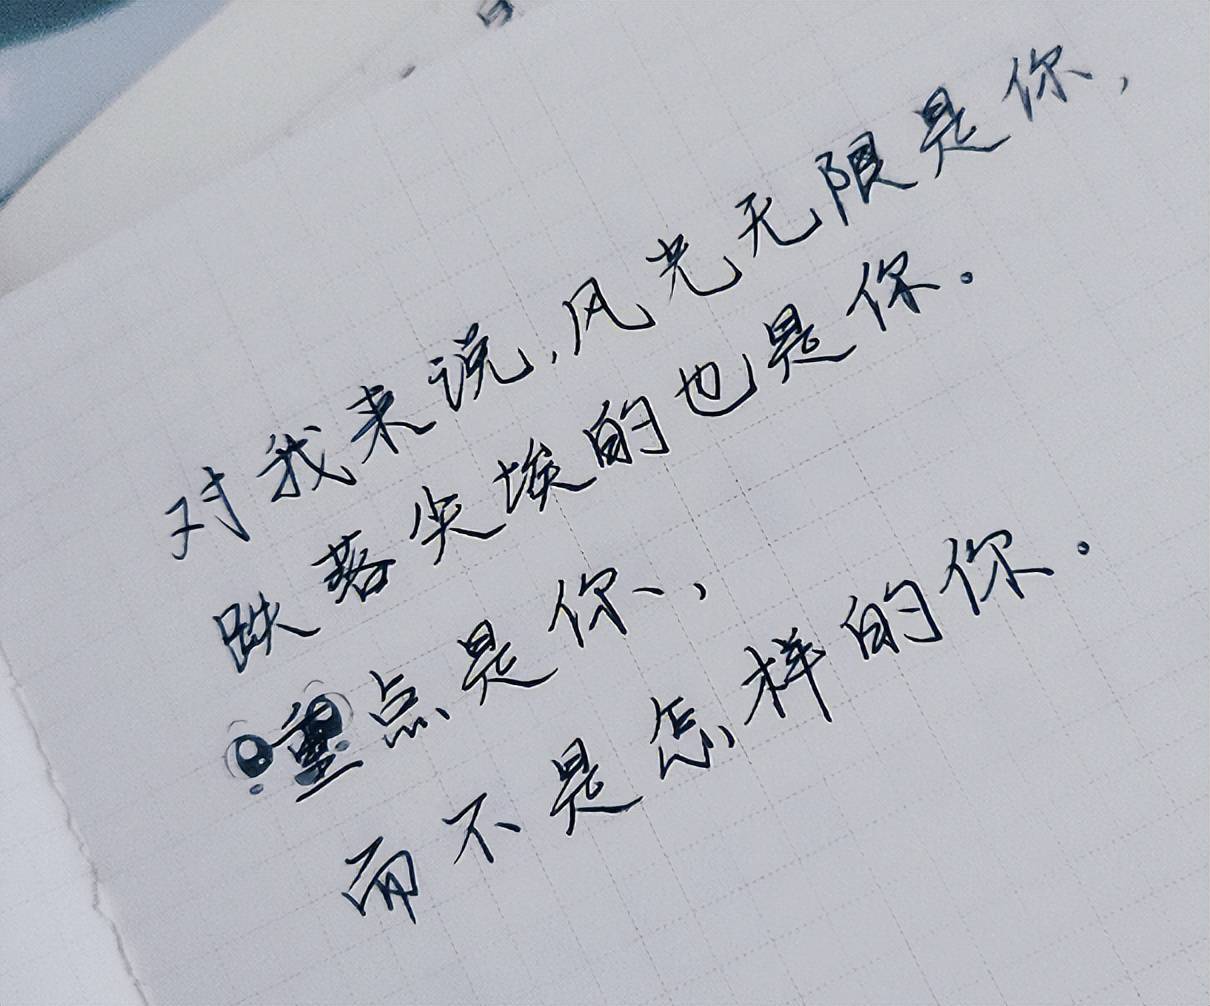 对我来说,风光无限是你,
跌落尘埃的也是你.
重点是你,
而不是怎样的你.